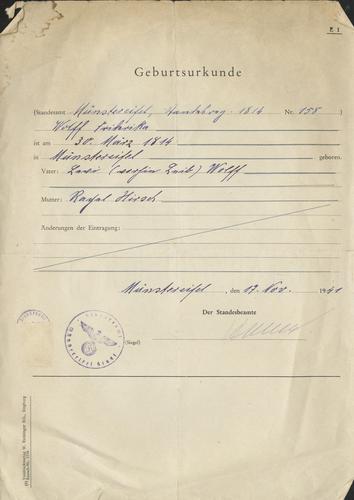 E 1
Geburtsurkunde
(Standesamt Münstereifel, 1814 Nr. 158)
Wolff Friderika
ist am 30. März 1814
in Münstereifel geboren.
Vater: Levi ( Leib) Wolff
Mutter: Rachel Hirsch
Änderungen der Eintragung:
Münstereifel, den 17. Nov. 1941
Der Standesbeamte
(Siegel)